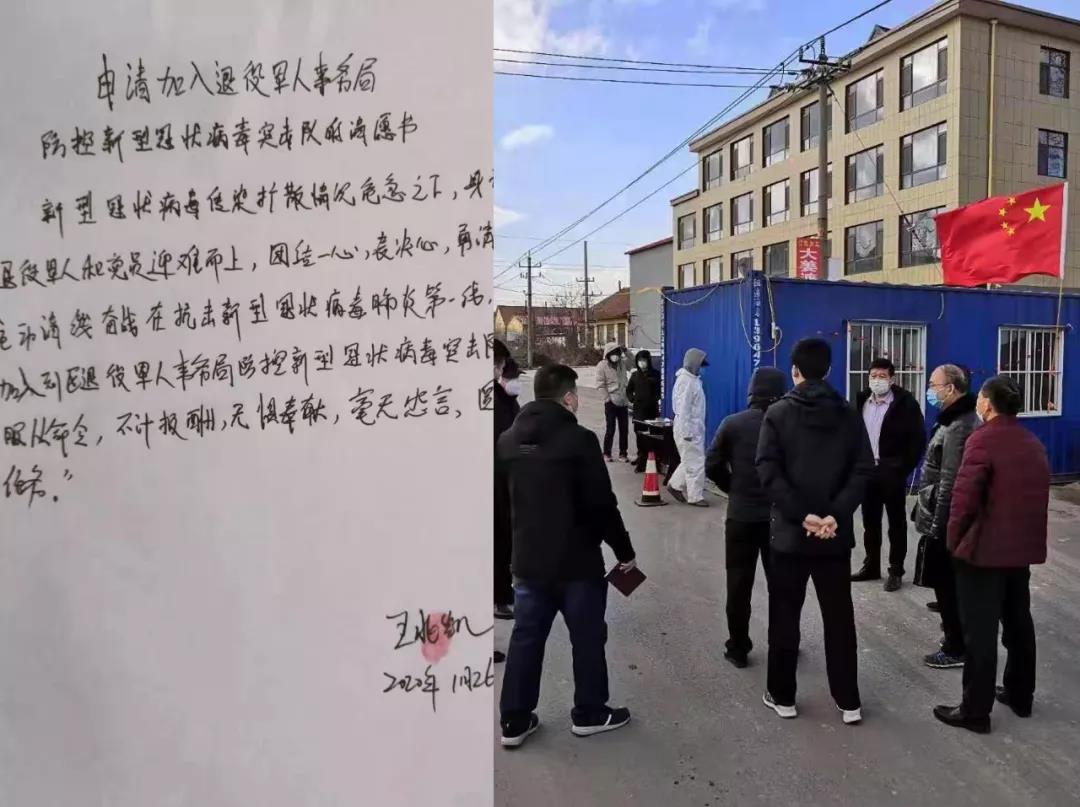 申请加入退役军人事务局
防控新型冠状病毒突击队的请愿书
新型冠状病毒传染扩散情况危急之下，
退役军人和党员迎难而上，团结一心，表决心，
动请缨奋战在抗击新型冠状病毒肺炎第一线，
加入到区退役军人事务局防控新型冠状病毒突击
服从命令，不计报酬，无惧奉献，毫无怨言，
任务。"
王兆凯
2020年1月26
大姜